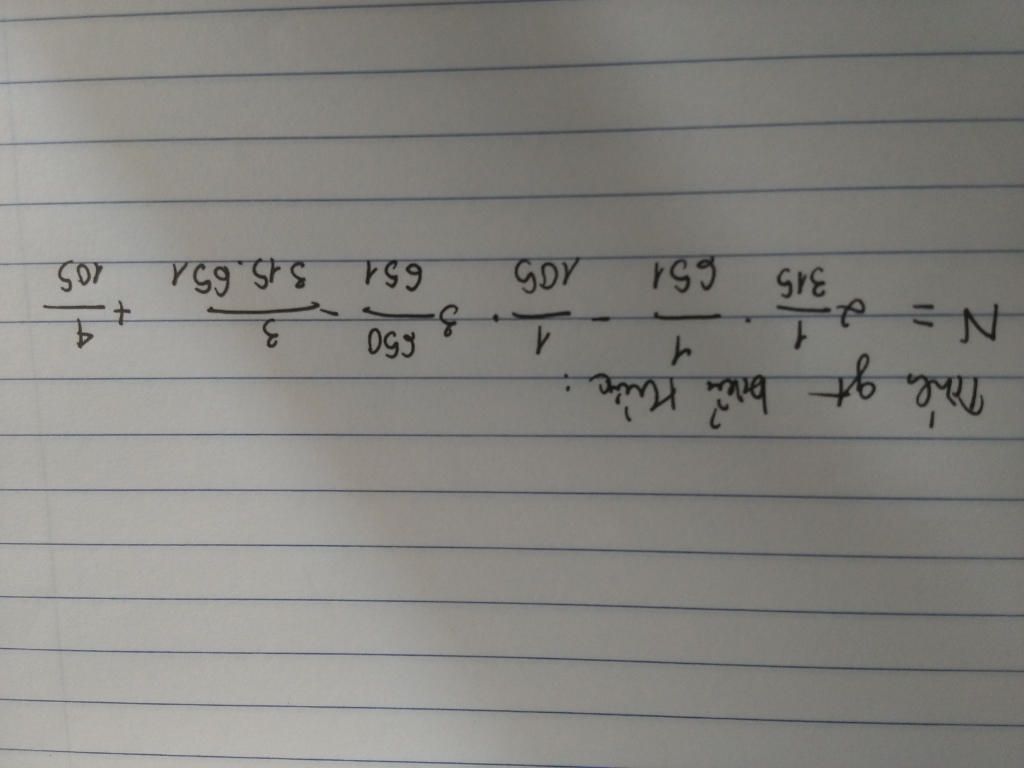 Tính gt biểu thức :
N = 2 1/315 . 1/651 - 1/105 . 3 650/651 - 3/315.651 + 4/105